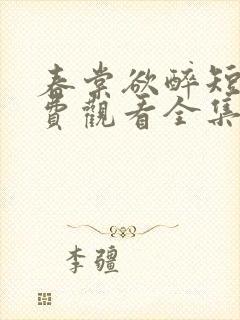 春棠欲醉短
費觀看全集
李疆